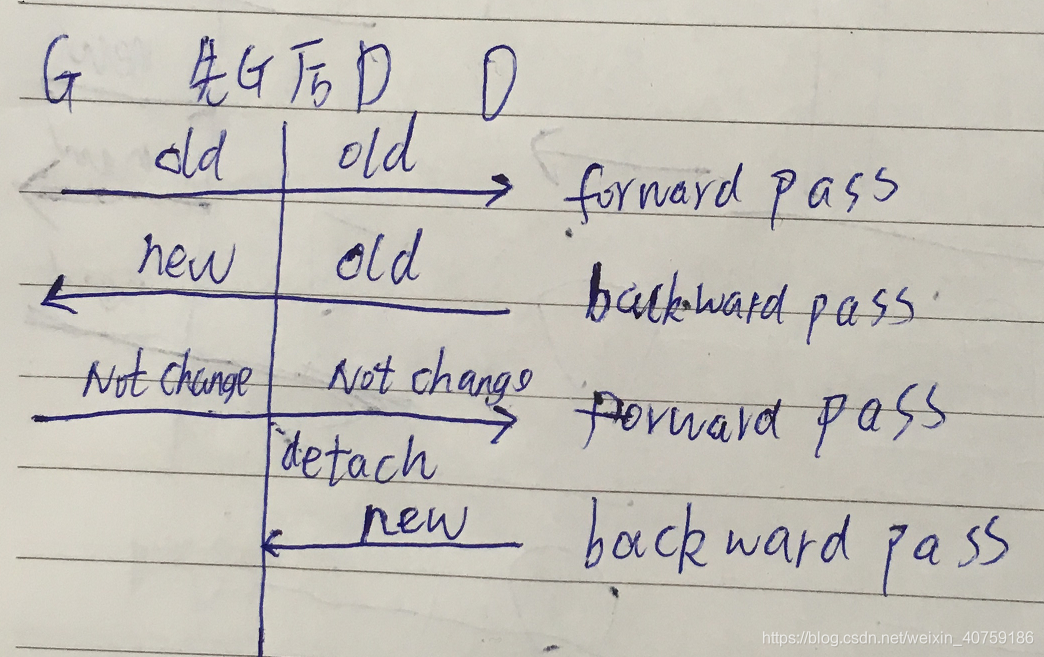 G 先G后D D
old old
forward pass
new old
backward pass
Not change Not change
forward pass
detach
new
backward pass
https://blog.csdn.net/weixin_40759186